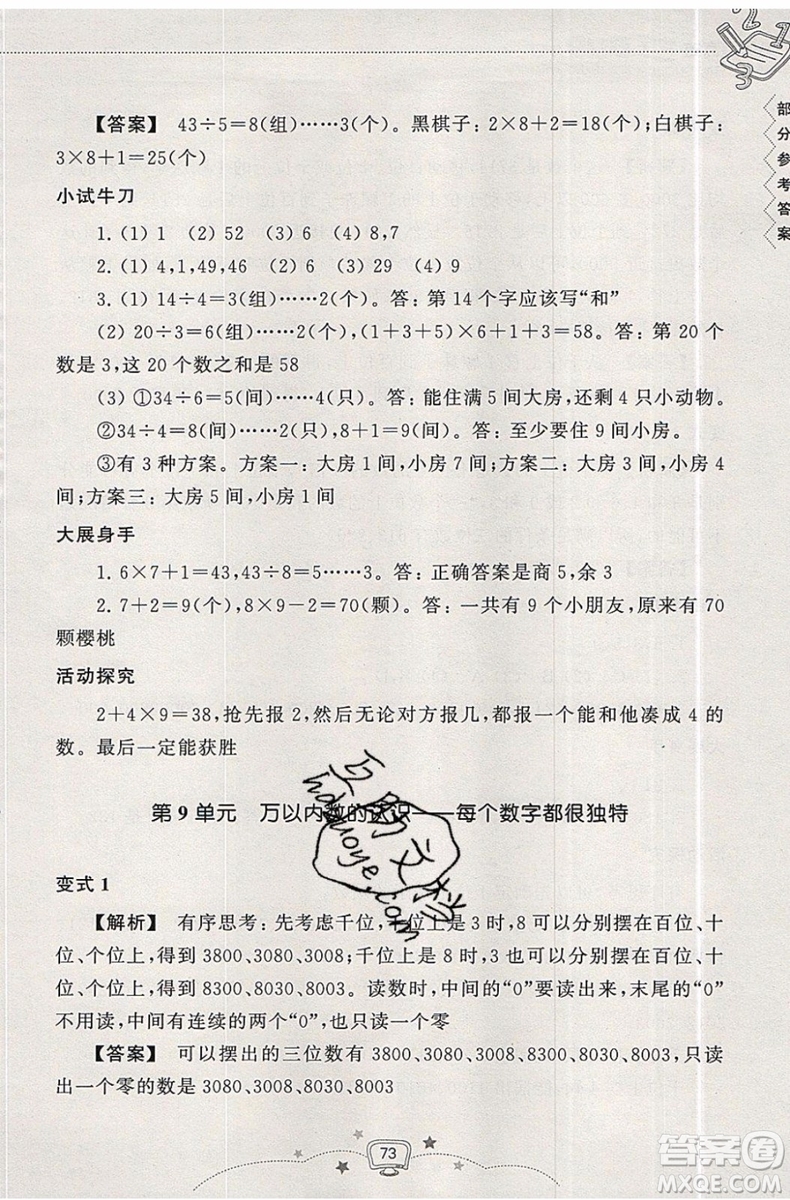 部分参考答案
【答案】 43÷5=8(组)……3(个)。黑棋子:2×8+2=18(个);白棋子:
3×8+1=25(个)
小试牛刀
1. (1) 1 (2) 52 (3) 6 (4) 8,7
2. (1) 4,1,49,46 (2) 6 (3) 29 (4) 9
3. (1) 14÷4=3(组)……2(个)。答:第14个字应该写“和”
(2) 20÷3=6(组)……2(个),(1+3+5)×6+1+3=58。答:第20个
数是3,这20个数之和是58
(3) ①34÷6=5(间)……4(只)。答:能住满5间大房,还剩4只小动物。
②34÷4=8(间)……2(只),8+1=9(间)。答:至少要住9间小房。
③有3种方案。方案一:大房1间,小房7间;方案二:大房3间,小房4
间;方案三:大房5间,小房1间
大展身手
1. 6×7+1=43,43÷8=5……3。答:正确答案是商5,余3
2. 7+2=9(个),8×9-2=70(颗)。答:一共有9个小朋友,原来有70
颗樱桃
活动探究
2+4×9=38,抢先报2,然后无论对方报几,都报一个能和他凑成4的
数。最后一定能获胜
第9单元 万以内数的认识——每个数字都很独特
变式1
【解析】 有序思考:先考虑千位,千位上是3时,8可以分别摆在百位、十
位、个位上,得到3800、3080、3008;千位上是8时,3也可以分别摆在百位、十
位、个位上,得到8300、8030、8003。读数时,中间的“0”要读出来,末尾的“0”
不用读,中间有连续的两个“0”,也只读一个零
【答案】 可以摆出的三位数有3800、3080、3008、8300、8030、8003,只读
出一个零的数是3080、3008、8030、8003
73
答案圈
MXQE.COM